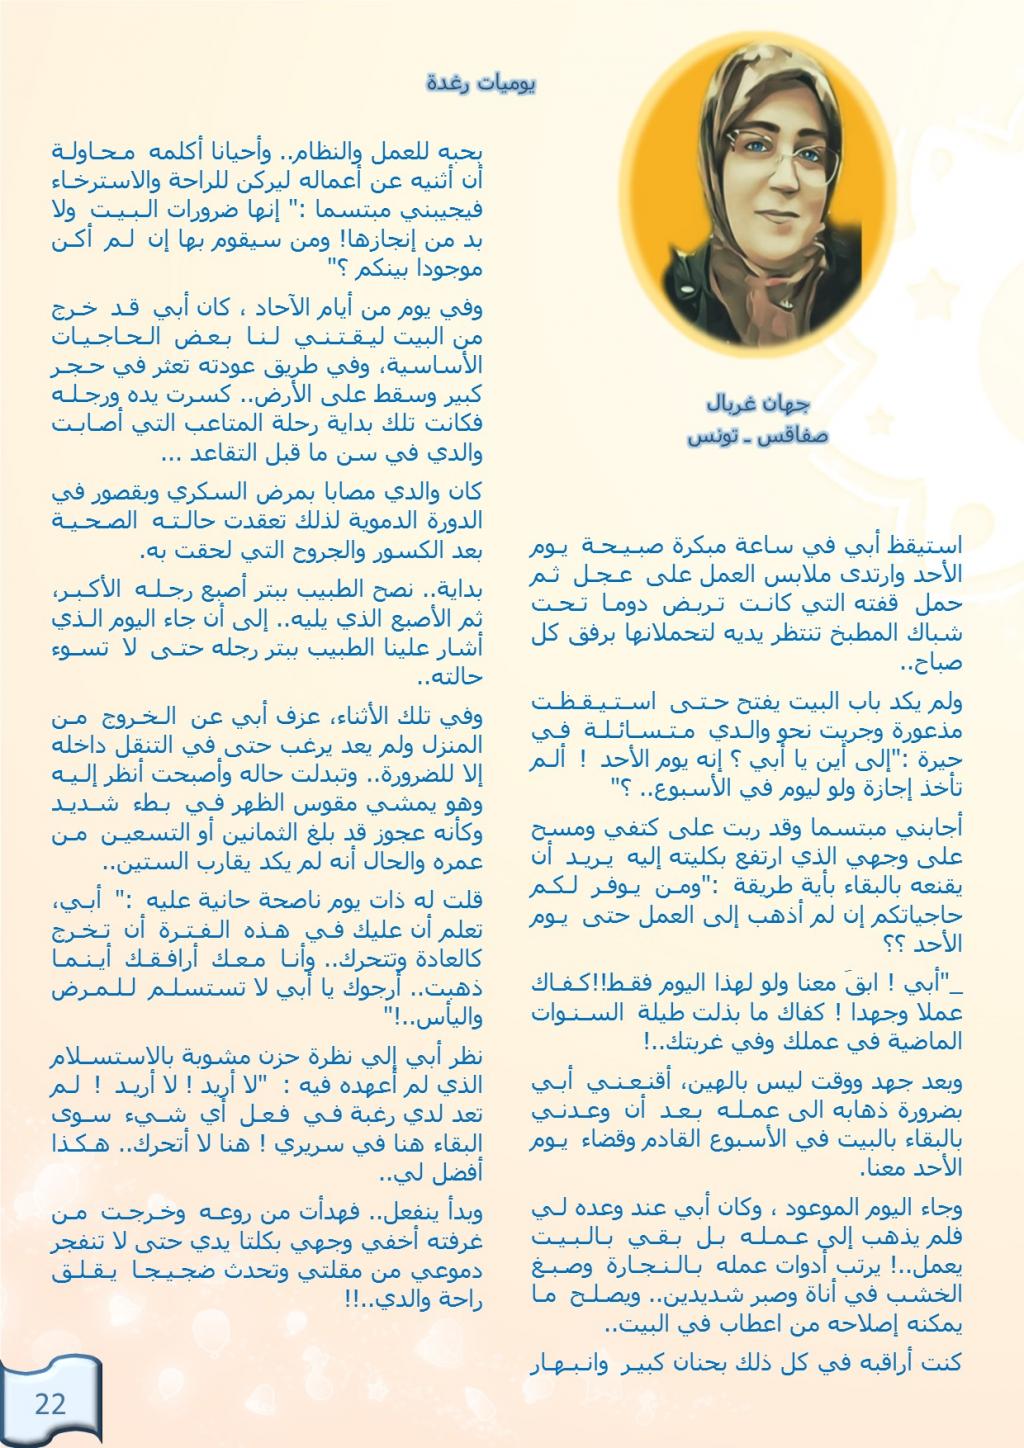 يوميات رغدة
جهان غربال
صفاقس ـ تونس
استيقظ أبي في ساعة مبكرة صبيحة يوم
الأحد وارتدى ملابس العمل على عجل ثم
حمل قفته التي كانت تربض دوما تحت
شباك المطبخ تنتظر يديه لتحملانها برفق كل
صباح..
ولم يكد باب البيت يفتح حتى استيقظت
مذعورة وجريت نحو والدي متسائلة في
حيرة :"إلى أين يا أبي ؟ إنه يوم الأحد ! ألم
تأخذ إجازة ولو ليوم في الأسبوع.. ؟"
أجابني مبتسما وقد ربت على كتفي ومسح
على وجهي الذي ارتفع بكليته إليه يريد أن
يقنعه بالبقاء بأية طريقة :"ومن يوفر لكم
حاجياتكم إن لم أذهب إلى العمل حتى يوم
الأحد ؟؟
_"أبي ! ابقَ معنا ولو لهذا اليوم فقط!!كفاك
عملا وجهدا ! كفاك ما بذلت طيلة السنوات
الماضية في عملك وفي غربتك..!
وبعد جهد ووقت ليس بالهين، أقنعني أبي
بضرورة ذهابه الى عمله بعد أن وعدني
بالبقاء بالبيت في الأسبوع القادم وقضاء يوم
الأحد معنا.
وجاء اليوم الموعود ، وكان أبي عند وعده لي
فلم يذهب إلى عمله بل بقي بالبيت
يعمل..! يرتب أدوات عمله بالنجارة وصبغ
الخشب في أناة وصبر شديدين.. ويصلح ما
يمكنه إصلاحه من اعطاب في البيت..
كنت أراقبه في كل ذلك بحنان كبير وانبهار
بحبه للعمل والنظام.. وأحيانا أكلمه محاولة
أن أثنيه عن أعماله ليركن للراحة والاسترخاء
فيجيبني مبتسما :" إنها ضرورات البيت ولا
بد من إنجازها! ومن سيقوم بها إن لم أكن
موجودا بينكم ؟"
وفي يوم من أيام الآحاد ، كان أبي قد خرج
من البيت ليقتني لنا بعض الحاجيات
الأساسية، وفي طريق عودته تعثر في حجر
كبير وسقط على الأرض.. كسرت يده ورجله
فكانت تلك بداية رحلة المتاعب التي أصابت
والدي في سن ما قبل التقاعد ...
كان والدي مصابا بمرض السكري وبقصور في
الدورة الدموية لذلك تعقدت حالته الصحية
بعد الكسور والجروح التي لحقت به.
بداية.. نصح الطبيب ببتر أصبع رجله الأكبر،
ثم الأصبع الذي يليه.. إلى أن جاء اليوم الذي
أشار علينا الطبيب ببتر رجله حتى لا تسوء
حالته..
وفي تلك الأثناء، عزف أبي عن الخروج من
المنزل ولم يعد يرغب حتى في التنقل داخله
إلا للضرورة.. وتبدلت حاله وأصبحت أنظر إليه
وهو يمشي مقوس الظهر في بطء شديد
وكأنه عجوز قد بلغ الثمانين أو التسعين من
عمره والحال أنه لم يكد يقارب الستين..
قلت له ذات يوم ناصحة حانية عليه :" أبي،
تعلم أن عليك في هذه الفترة أن تخرج
كالعادة وتتحرك.. وأنا معك أرافقك أينما
ذهبت.. أرجوك يا أبي لا تستسلم للمرض
واليأس..!"
نظر أبي إلي نظرة حزن مشوبة بالاستسلام
الذي لم أعهده فيه : "لا أريد ! لا أريد ! لم
تعد لدي رغبة في فعل أي شيء سوى
البقاء هنا في سريري ! هنا لا أتحرك.. هكذا
أفضل لي..
وبدأ ينفعل.. فهدأت من روعه وخرجت من
غرفته أخفي وجهي بكلتا يدي حتى لا تنفجر
دموعي من مقلتي وتحدث ضجيجا يقلق
راحة والدي..!!
22